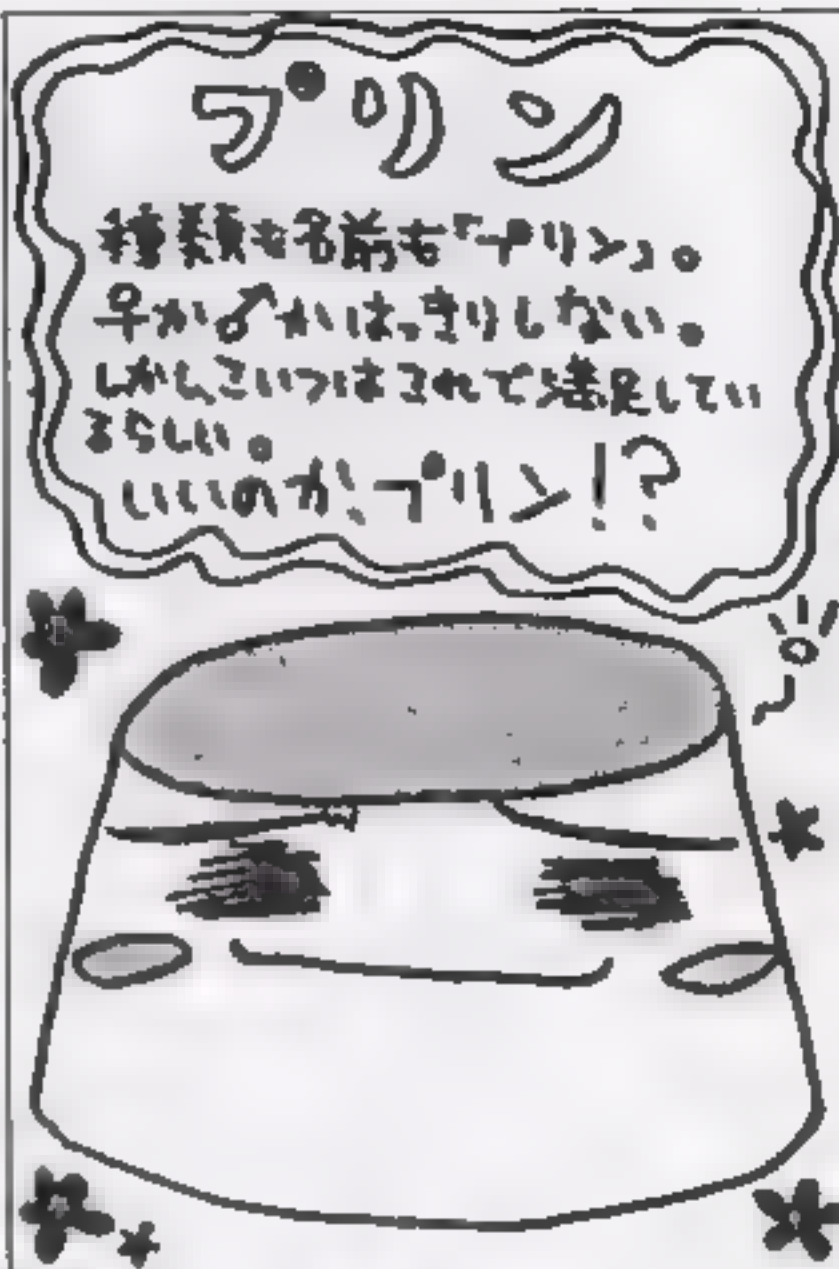 プリン
種類も名前も「プリン」。
♀か♂かはっきりしない。
しかしこいつはこれで満足してい
るらしい。
いいのか、プリン!?